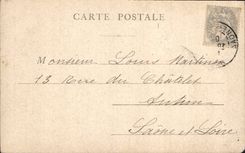 CARTE POSTALE
Monsieur Louis Martinon
13 Rue du Châtelet
Autun
Saône et Loire